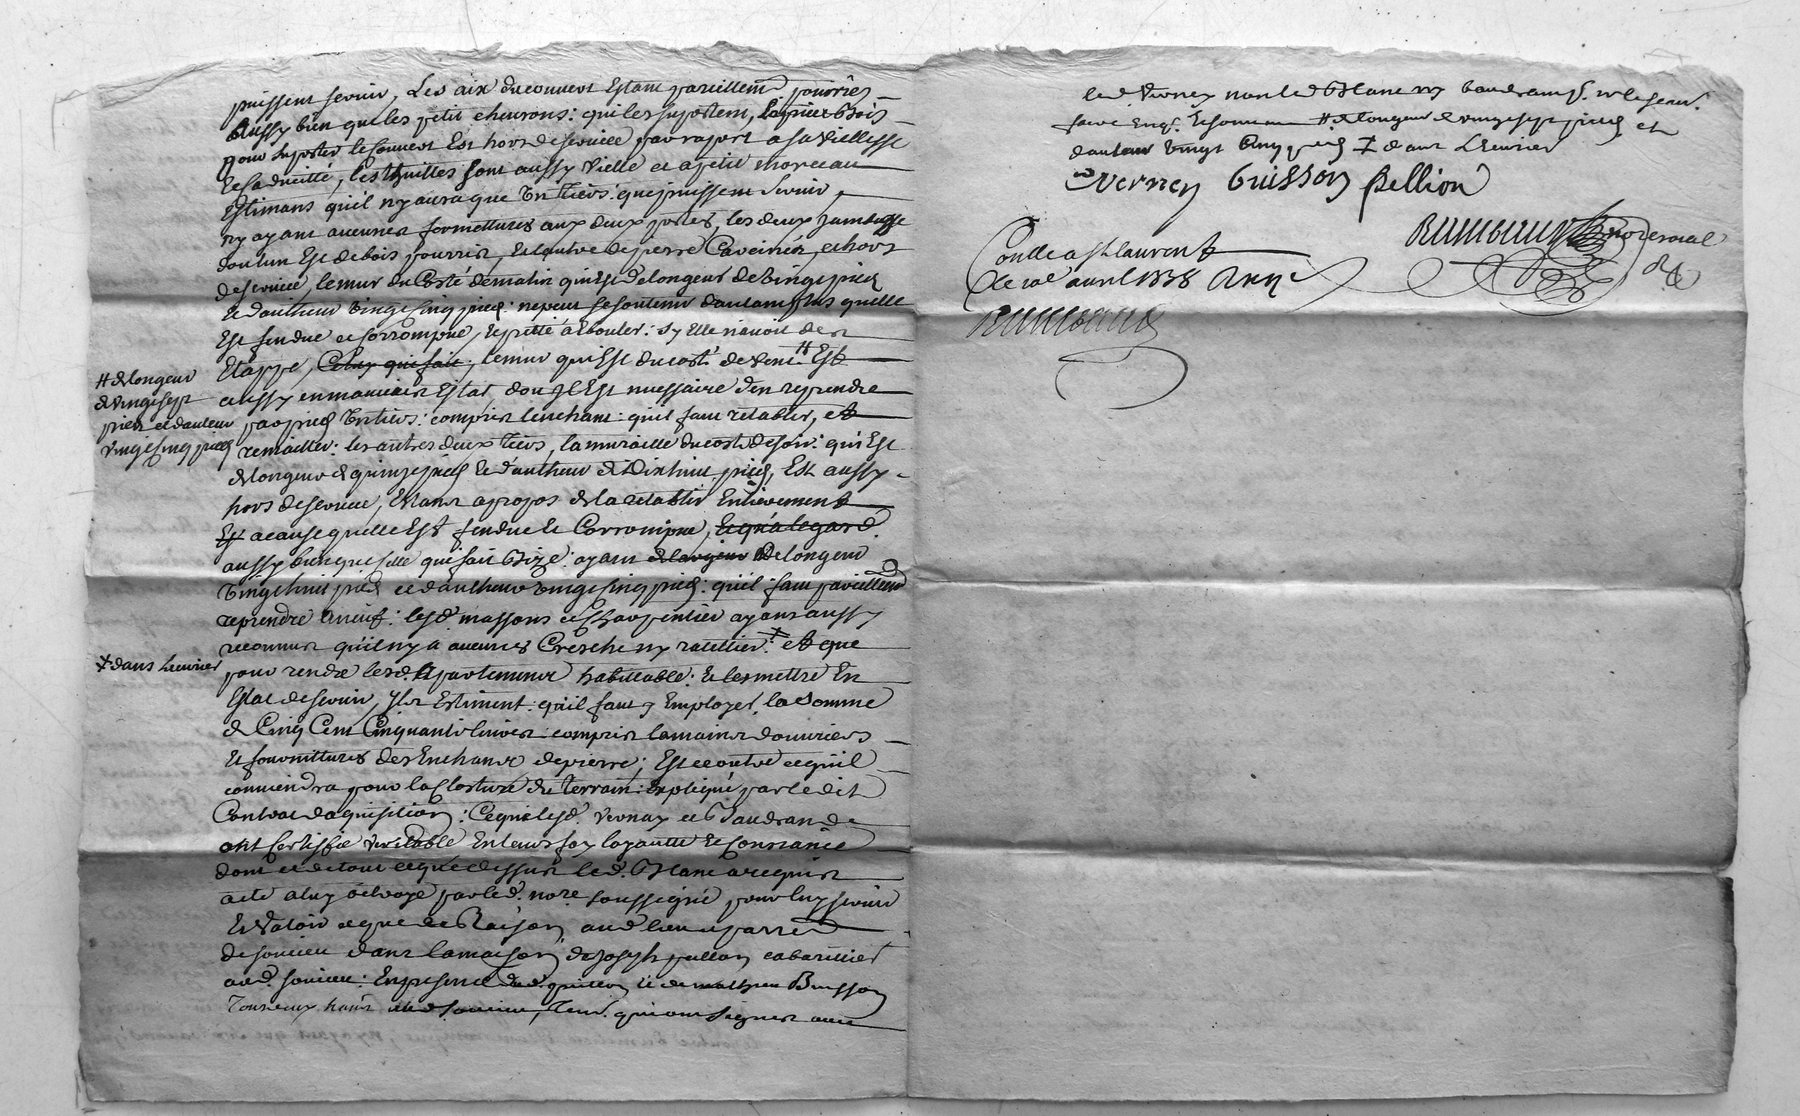 puissent servir, Les aix du couvert Estant pareillem pourries
Aussy bien que les petit chevrons: qui les suportent, la piece Bois
pour suporter le couvert Est hors de service par raport a sa viellesse
Et caducitté, les thuilles sont aussy vielle et a petit morceau
Estimans qu'il n'y aura que Un tiers: que puissent servir,
n'y ayant aucunes fermettures aux deux portes, les deux jambage
dont un Est de bois pourris, Et l'autre de pierre, et hors
de service, le mur du Costé de matin qui Est de longeur de Vingt pied
Et d'autheur Vingt Cinq pied: ne peut se soutenir d'autant plus quelle
Est fendue et Corrompue, Et prette a Ebouler: s'y Elle n'avoit des
Etappe, le mur qui Est du costé de vent # Est
aussy en mauvais Estat, dou Il Est necessaire d'en reprendre
par pied Un tiers: compris l'enchant: qu'il faut retablir, et
remailler: les autres deux tiers, la muraille du costé de soir: qui Est
de longeur de quinze pied Et d'autheur de Dixhuit pied, Est aussy
hors de service, Estant apropos de la retablir Entierement
a cause quelle Est fendue Et Corrompue, Et qu'a legard
aussy bien que celle qui fait Bize: ayant de longeur
Vingt huit pied et d'autheur vingt Cinq pied: qu'il faut pareillem
reprendre a neuf: lesd. massons et Charpentier ayant aussy
reconnus qu'il n'y a aucunes Creche ny ratellier: ‡ et que
pour rendre lesd. Apartement habittable: Et les mettre En
Estat de servir, Ils Estiment: qu'il faut y Employer la somme
de Cinq Cent Cinquante livres: compris la mains d'ouvriers
Et fournittures des Enchant de pierre; Est et outre ce qu'il
conviendra pour la Closture du terrain: Expliqué par le dit
Contrat d'aquisition: Ce que lesd. Vernay et Baudrand
ont Certiffié veritable En leurs foy loyautté Et Consiance
dont et de tout ce que dessus led. Blanc a requis
acte a luy octroyé par led. no.re soussigné pour luy servir
Et Valoir ce que de Raison, aud. lieu et parroisse
de soucieu dans la maison de Joseph cabarettier
aud. soucieu: En presence dud. Et de Mathieu Buisson
hant dud. soucieu, Tem. qui ont signer avec
# de longeur
de vingt sept
pied et d'auteur
vingt Cinq pied
‡ dans L'ecurier
led. Verney non led. Blanc ny baudrand p. ne le scavoir
# de longeur de vingt sept pied et
d'auteur Vingt Cinq pied ‡ dans L'ecurier
Verney Buisson Pellion
Rimbaud no.re royal
Conlle a St laurent
Ce 10e avril 1738
Rimbaud